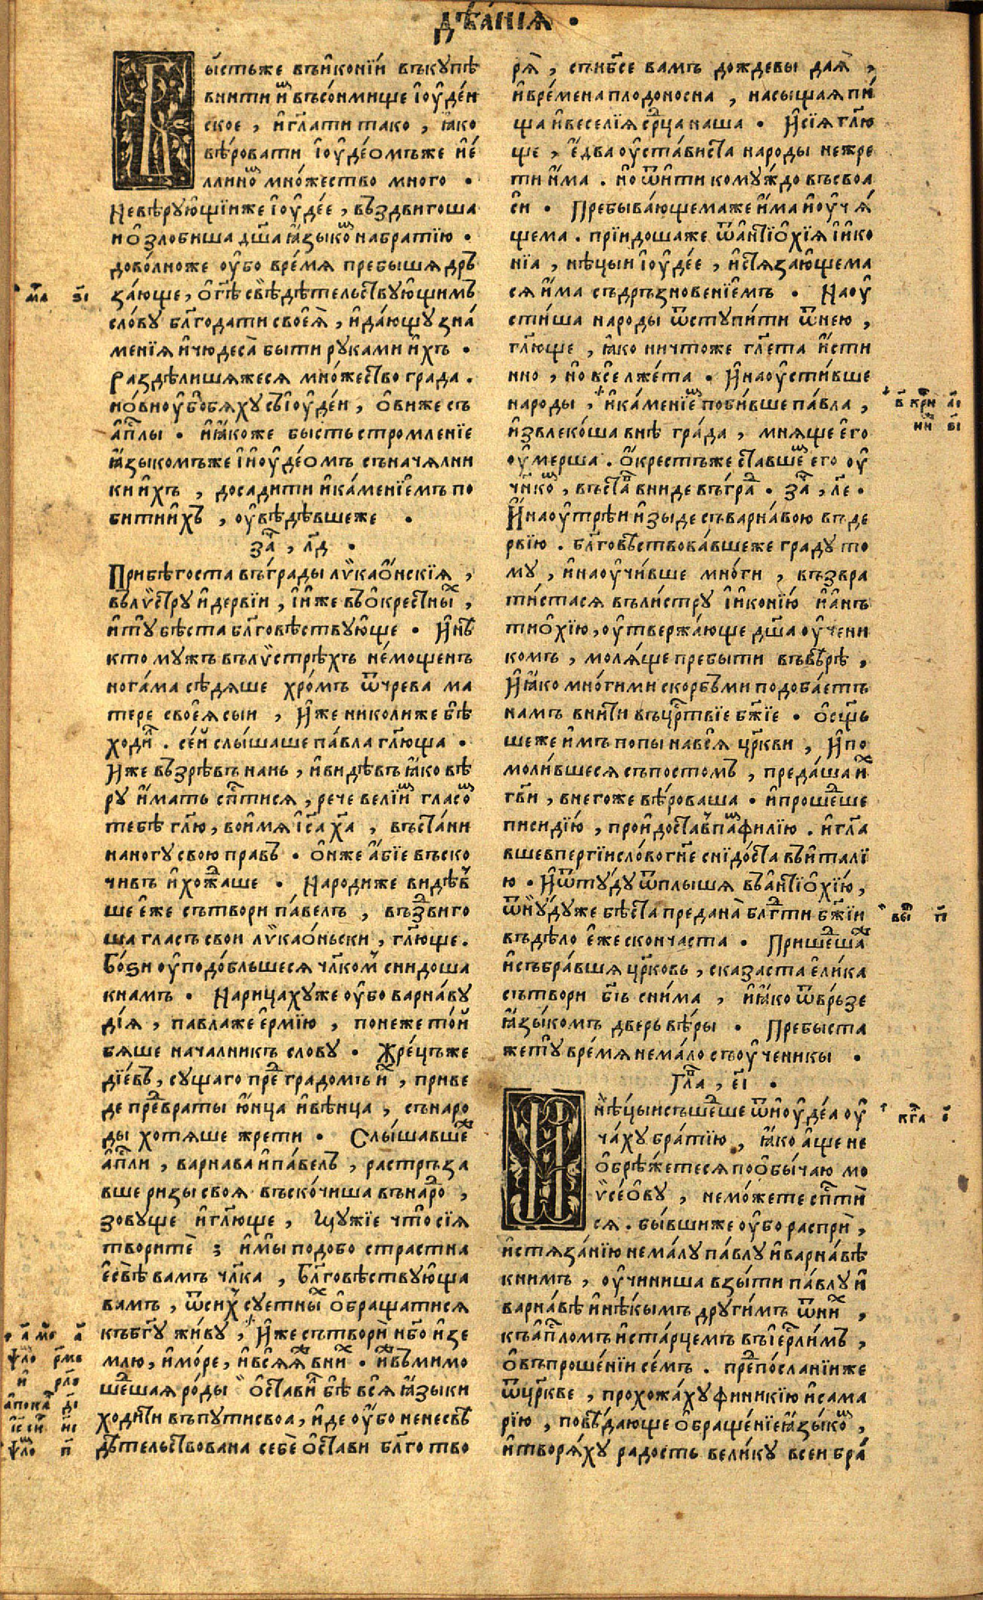 дѣѧ́нїѧ •
Бы́стьже въико́нїи въкꙋпѣ
внити и҆мъ въсонмище і҆ꙋде́и
ское , и҆ гл҃ати тако , ꙗ҆ко
вѣ́ровати і҆ꙋде́омъже и҆е́
ллиномъ мно́жество много •
Невѣ́рꙋющїиже і҆ꙋде́е , въздвигоша
и҆ ѻ҆зло́биша дш҃а ꙗ҆зыкомъ набра́тїю •
дово́лноже оу҆бо вре́мѧ пребышѧ дръ
за́юще , ѻ҆гд҃ѣ свѣдѣ́тельствꙋющимъ
сло́вꙋ бл҃годати своеѧ̀ , и҆ даю́щꙋ зна́
менїѧ и҆ чюдеса̀ быти рꙋками и҆́хъ •
Раздѣли́шѧжесѧ мно́жество града .
и҆ ѻ҆́виоу҆бо бѧ́хꙋ съі҆ꙋде́и , ѻ҆́виже съ
а҆пл҃ы • и҆ ꙗ҆́коже бысть стромленїе
ꙗ҆зыкомъже и҆ і҆ꙋде́омъ съначѧлни
ки и҆́хъ , досадити и҆ ка́менїемъ по
бити и҆́хъ , оу҆вѣ́дѣвшеже •
за҃ , лд҃ •
Прибѣго́ста въгра́ды лѷкао́нскїѧ ,
въ лѷ́стрꙋ и҆ де́рвїи , и҆ и҆́же въ ѻ҆кре́стныхъ ,
и҆ тꙋ бѣ́ста бл҃говѣ́ствꙋюще • И҆ нѣ́
кто мꙋжъ въ лѷ́стрѣхъ не́мощенъ
нога́ма сѣдѧ́ше хро́мъ ѿ чрева ма
тере своеѧ̀ сыи , И҆́же николиже бѣ̀
ходи́лъ . се́и слы́шаше па́вла гл҃юща •
И҆́же възрѣ́въ нань , и҆ ви́дѣвъ ꙗ҆́ко вѣ
рꙋ и҆́мать сп҃тисѧ , рече ве́лїимъ гла́сомъ
тебѣ̀ гл҃ю , во и҆́мѧ і҆с҃а ха҃ , въста́ни
наногꙋ̀ свою правъ • ѻ҆́нже а҆́бїе въско
чивъ и҆ хожда́ше • Наро́диже ви́дѣв
ше е҆́же сътвори па́велъ , въздвиго
ша гла́съ свои лѷкао́ньски , гл҃юще .
Бо́ѕи оу҆подо́бльшесѧ чл҃комъ снидоша
къ намъ • Нарица́хꙋже оу҆бо варна́вꙋ
ді́ѧ , павлаже е҆рмі́ю , понеже то́и
бѧ́ше нача́лникъ сло́вꙋ • Жре́цъже
ді́евъ , сꙋщаго пре́дъ градомъ и҆́хъ , приве
де предъврата̀ ю҆́нца и҆ вѣ́нца , съ наро
ды хотѧ́ше жрети • Слы́шавшеже
а҆пл҃и , варна́ва и҆ па́велъ , растръза
вше ри́зы своѧ̀ въско́чиша вънаро́дъ ,
зовꙋще и҆ гл҃юще , Мꙋжїе что̀ сїѧ
творитѐ ; и҆ мы̀ подобо страстна
е҆свѣ̀ вамъ чл҃ка , Бл҃говѣствꙋюща
вамъ , ѿ си́хъ сꙋетныхъ ѻ҆браща́тисѧ
къ бг҃ꙋ жи́вꙋ , И҆́же сътвори̏ нб҃о и҆ зе
млю , и҆ мо́ре , и҆ всѧ̀ ꙗ҆́же вни́хъ • и҆́же въ мимо
ше́дшаѧ ро́ды ѻ҆ста́вилъ бѣ̀ всѧ̀ ꙗ҆зы́ки
ходи́ти въ пꙋти своѧ̀ , и҆ де оу҆бо не несвѣ
дѣ́тельствована себѐ ѻ҆ста́ви бл҃го тво
рѧ̀ , съ нб҃се вамъ дождевы даѧ̀ ,
и҆ вре́мена плодоносна , насыща́ѧ пи́
ща и҆ весе́лїѧ ср҃ца на́ша • И҆ сїѧ гл҃ю
ще , е҆два оу҆ста́виста наро́ды не жре
ти и҆́ма . но ѿити комꙋ́ждо въ своѧ
си • Пребыва́ющемаже и҆́ма и҆ оу҆чѧ́
щема . прїидошаже ѿ а҆нтїѻхїѧ и҆ и҆ко
нїа , нѣ́цыи і҆ꙋде́е , и҆ стѧза́ющема
сѧ и҆́ма съ дръзнове́нїемъ • Наоу
сти́ша наро́ды ѿстꙋпи́ти ѿ нею ,
гл҃юще , ꙗ҆́ко ничтоже гл҃ета и҆́сти
нно , но все̏ лже́та • И҆ наоу҆сти́вше
народы , и҆ ка́менїемъ поби́вше па́вла ,
и҆звлеко́ша внѣ̀ гра́да , мнѧ́ще е҆го
оу҆ме́рша . Ѻ҆́крестъже ста́вшемъ его оу҆
чн҃ико́мъ , въста́въ вниде въгра́дъ • за҃ , ле҃ •
И҆ наоу҆трѣ́и и҆зыде съ варна́вою въ де
рвїю . бл҃говѣ́ствова́вшеже градꙋ то
мꙋ , и҆ наоу҆чи́вше мно́ги , възвра
ти́стасѧ въ ли́стрꙋ и҆ и҆ко́нїю и҆ а҆нъ
тиѻ҆хїю , оу҆твержа́юще дш҃а оу҆чени
комъ , молѧ́ще пребы́ти въ вѣ́рѣ ,
И҆ ꙗ҆ко мно́гими скорбьми подоба́етъ
намъ вни́ти въ црⷭ҇твїе бж҃їе • Ѻ҆сщ҃ь
шеже и҆мъ попы̀ навсѧ̀ цр҃кви , И҆ по
моли́вшесѧ съ посто́мъ , преда́ша и҆́хъ
гв҃и , в негоже вѣ́роваша • и҆ проше́дше
писиді́ю , прои҆до́ста въ памфилі́ю . и҆ гл҃а
вше въ пе́ргїи сло́во гн҃е сни́доста въ и҆тали́
ю • И҆ ѿтꙋ́дꙋ ѿплы́шѧ въ а҆нтїѻ҆хі́ю ,
ѿню́дꙋже бѣ́ста предана̀ бл҃гти бж҃їи
въ дѣ́ло е҆́же сконча́ста • Прише́дшаже
и҆ събра́вшѧ цр҃ковь , сказа́ста е҆ли́ка
сътвори̏ бг҃ъ сни́ма , и҆ ꙗ҆́ко ѿвръ́зе
ꙗ҆зы́комъ дверь вѣ́ры • Пребыста
же тꙋ̀ вре́мѧ нема́ло съ оу҆ченикы •
Гла҃ , еі҃ •
И҆ нѣ́цыи съше́дше ѿ і҆ꙋде́а оу҆
ча́хꙋ бра́тїю , ꙗ҆́ко а҆́ще не
ѻ҆брѣ́жетесѧ по ѻ҆бы́чаю мо
ѷсе́ѻвꙋ , немо́жете сп҃ти
сѧ . бы́вшиже оу҆бо распри̏ ,
и҆ стѧза́нїю нема́лꙋ па́влꙋ и҆ варна́вѣ
к нимъ , оу҆чини́ша взы́ти па́влꙋ и҆
варна́вѣ и҆ нѣ́кымъ дрꙋги́мъ ѿ ни́хъ ,
къ а҆пл҃омъ и҆ ста́рцемъ въ і҆ер҃ли́мъ ,
ѻ҆ въпроше́нїи се́мъ . пре́посланїиже
ѿ цр҃кве , прохожа́хꙋ финики́ю и҆ сама
рі́ю , повѣ́дающе ѻ҆браще́нїе ꙗ҆зыкомъ ,
и҆ творѧ́хꙋ радость вели́кꙋ всеи бра́